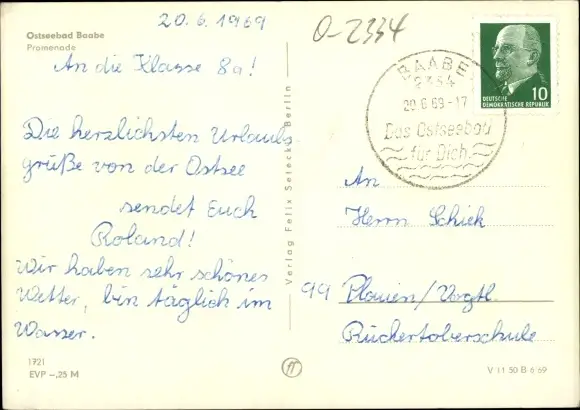 20.6.1969
O-2334
Ostseebad Baabe
Promenade
An die Klasse 8a!
Die herzlichsten Urlaubs-
grüße von der Ostsee
sendet Euch
Roland!
Wir haben sehr schönes
Wetter, bin täglich im
Wasser.
1721
EVP -,25 M
Verlag Felix Setecki, Berlin
BAABE
2354
20.6.69-17
Das Ostseebad
für Dich
10
DEUTSCHE
DEMOKRATISCHE REPUBLIK
An
Herrn Schiek
99 Plauen/Vogtl.
Rückertoberschule
V 11 50 B 6 69